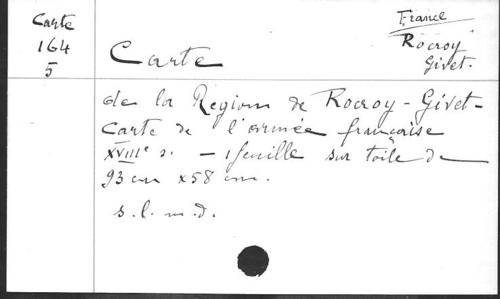 Carte
164
5
France
Rocroy
Givet.
Carte
de la Region de Rocroy - Givet -
Carte de l'armée française
XVIIIe s. - 1 feuille sur toile de
93 cm x 58 cm.
s.l.n.d.